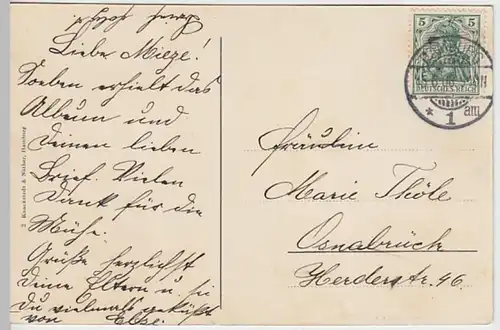 Liebe Mieze!
Soeben erhielt das
Album und
Deinen lieben
Brief. Vielen
Dank für die
Mühe.
Grüße herzlichst
Deine Eltern u. sei
Du vielmals geküßt
von Else.
2 Knackstedt & Näther, Hamburg
5 5
DEUTSCHES REICH
* 1 am
Fräulein
Marie Thöle
Osnabrück
Herderstr. 46